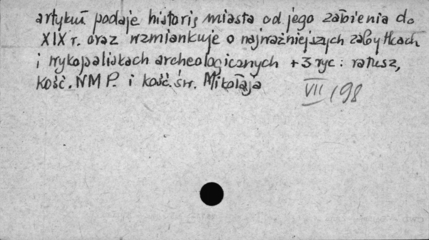 artykuł podaje historię miasta od jego założenia do
XIX r. oraz wzmiankuje o najważniejszych zabytkach
i wykopaliskach archeologicznych + 3 ryc: ratusz,
kość. NMP. i kość. św. Mikołaja
VII / 98